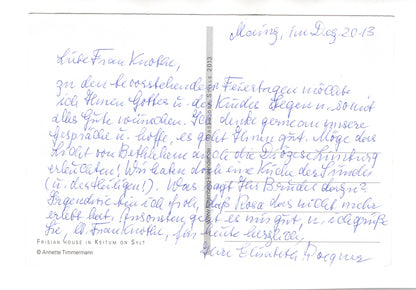 Mainz, im Dez. 2013
Liebe Frau Knothe,
zu den bevorstehenden Feiertagen möchte
ich Ihnen Gottes u. des Kindes Segen u. somit
alles Gute wünschen. Ich denke gerne an unsere
Gespräche u. hoffe, es geht Ihnen gut. Möge das
Licht von Bethlehem auch die Diözese Limburg
erleuchten! Wir haben doch eine Kirche der Sünder
(u. der Heiligen!). Was sagt Ihr Bruder dazu?
Irgendwie bin ich froh, daß Rosa das nicht mehr
erlebt hat. Ansonsten geht es mir gut, u. ich grüße
Sie, lb. Frau Knothe, für heute herzlich,
Ihre Elisabeth
Frisian House in Keitum on Sylt
© Annette Timmermann